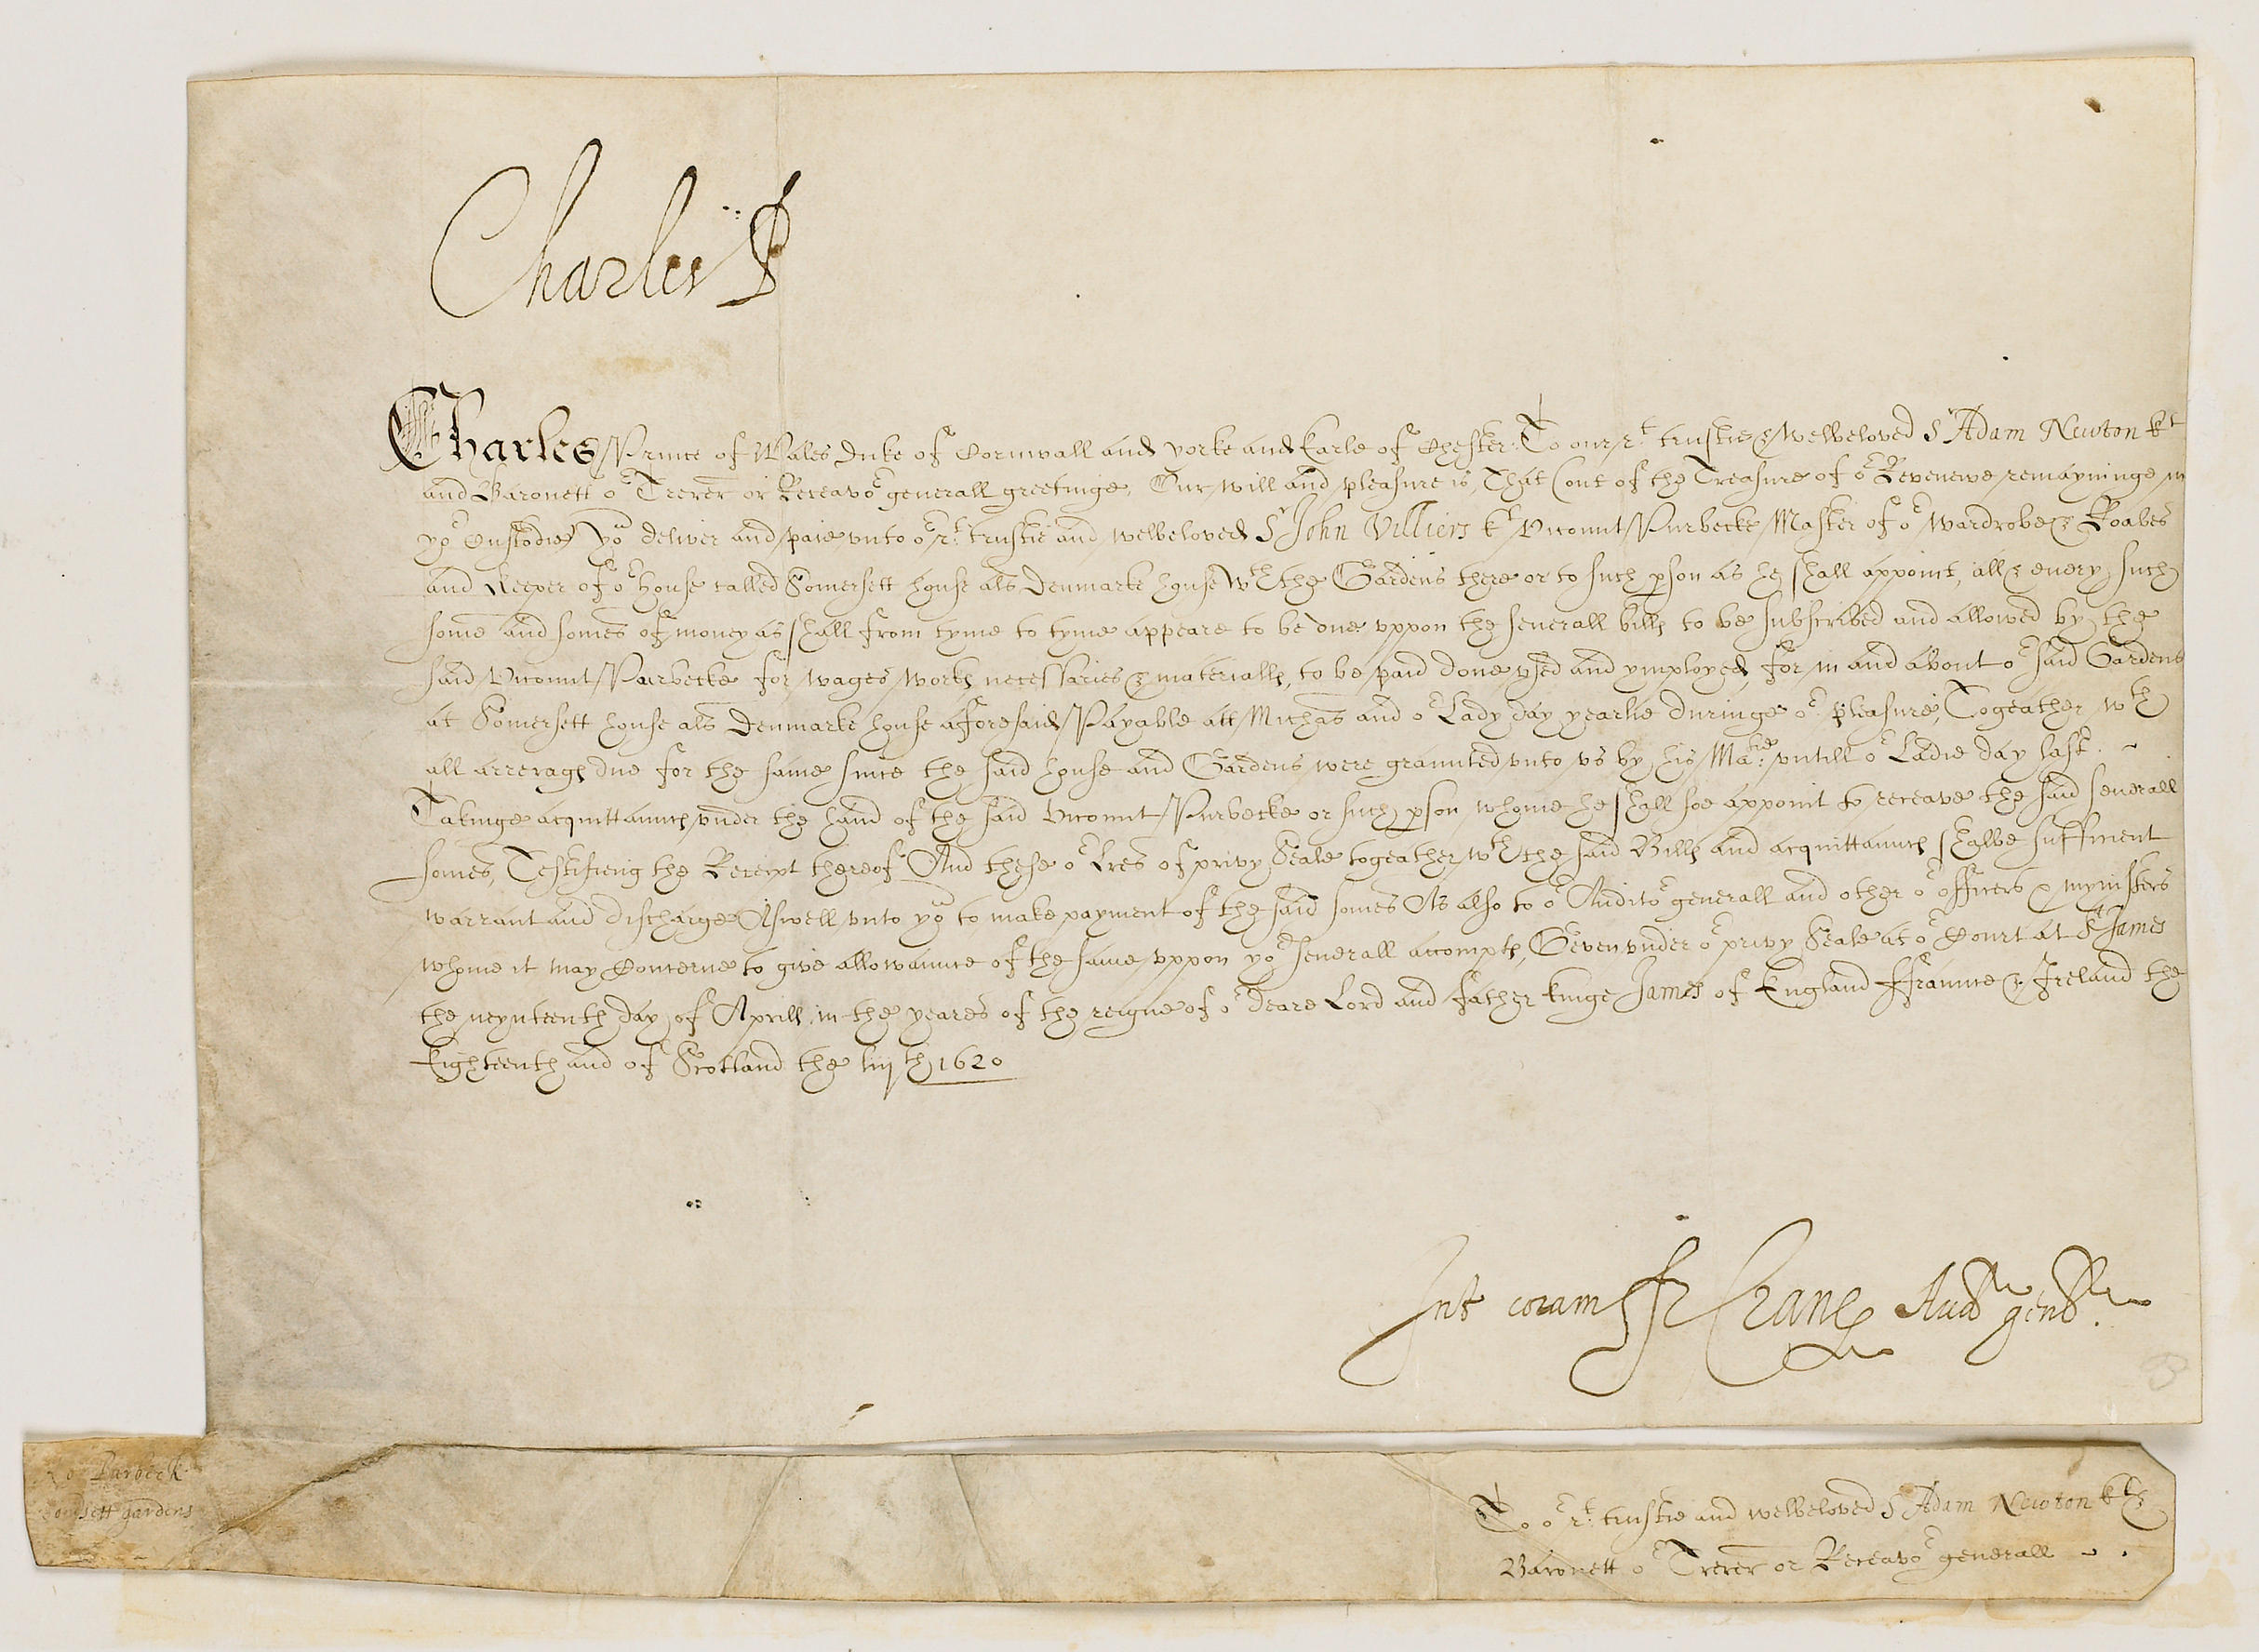 Charles P
Charles Prince of Wales Duke of Cornwall and Yorke and Earle of Chester: To our rt. trustie & welbeloved Sr Adam Newton kt
and Baronett or Trer̄er or Receavor generall greetinge, Our will and pleasure is, That (out of the Treasure of or Revenewe remayninge in
yor Custodie) you deliver and paie vnto or rt: trustie and welbeloved Sr John Villiers kt Vicount Purbecke Master of or Wardrobe & Roabes
and Keeper of or house called Somersett house als Denmarke house wth the Gardens there or to such pson as he shall appoint, all & euery such
some and somes of money as shall from tyme to tyme appeare to be due vppon the seuerall bills to be subscribed and allowed by the
said Vicount Purbecke for wages works necessaries & materialls, to be paid done vsed and ymployed, for in and about or said Gardens
at Somersett house als Denmarke house aforesaid, Payable att Michās and or Lady day yearlie duringe or pleasure, Togeather wth
all arrerags due for the same since the said house and Gardens were graunted vnto vs by his Matie: vntill or Ladie day last.
Takinge acquittaunces vnder the hand of the said Vicount Purbecke or such pson whome he shall soe appoint to receave the said seuerall
somes, Testifieng the Receipt thereof And these or Lres of privy Seale togeather wth the said Bills and acquittaunces shalbe sufficient
warrant and discharge Aswell vnto you to make payment of the said somes As also to or Auditor generall and other or officers & mynisters
whome it may Concerne to give allowaunce of the same vppon yor seuerall accompts, Geven vnder or privy Seale at or Court at St James
the neynteenth day of Aprill in the yeares of the reigne of or deare Lord and father kinge James of England ffraunce & Ireland the
Eighteenth and of Scotland the liijth 1620
Int coram ffr Crane Audr genll.
Purbeck
gardens
To or rt: trustie and welbeloved Sr Adam Newton kt &
Baronett or Trer̄er or Receavor generall